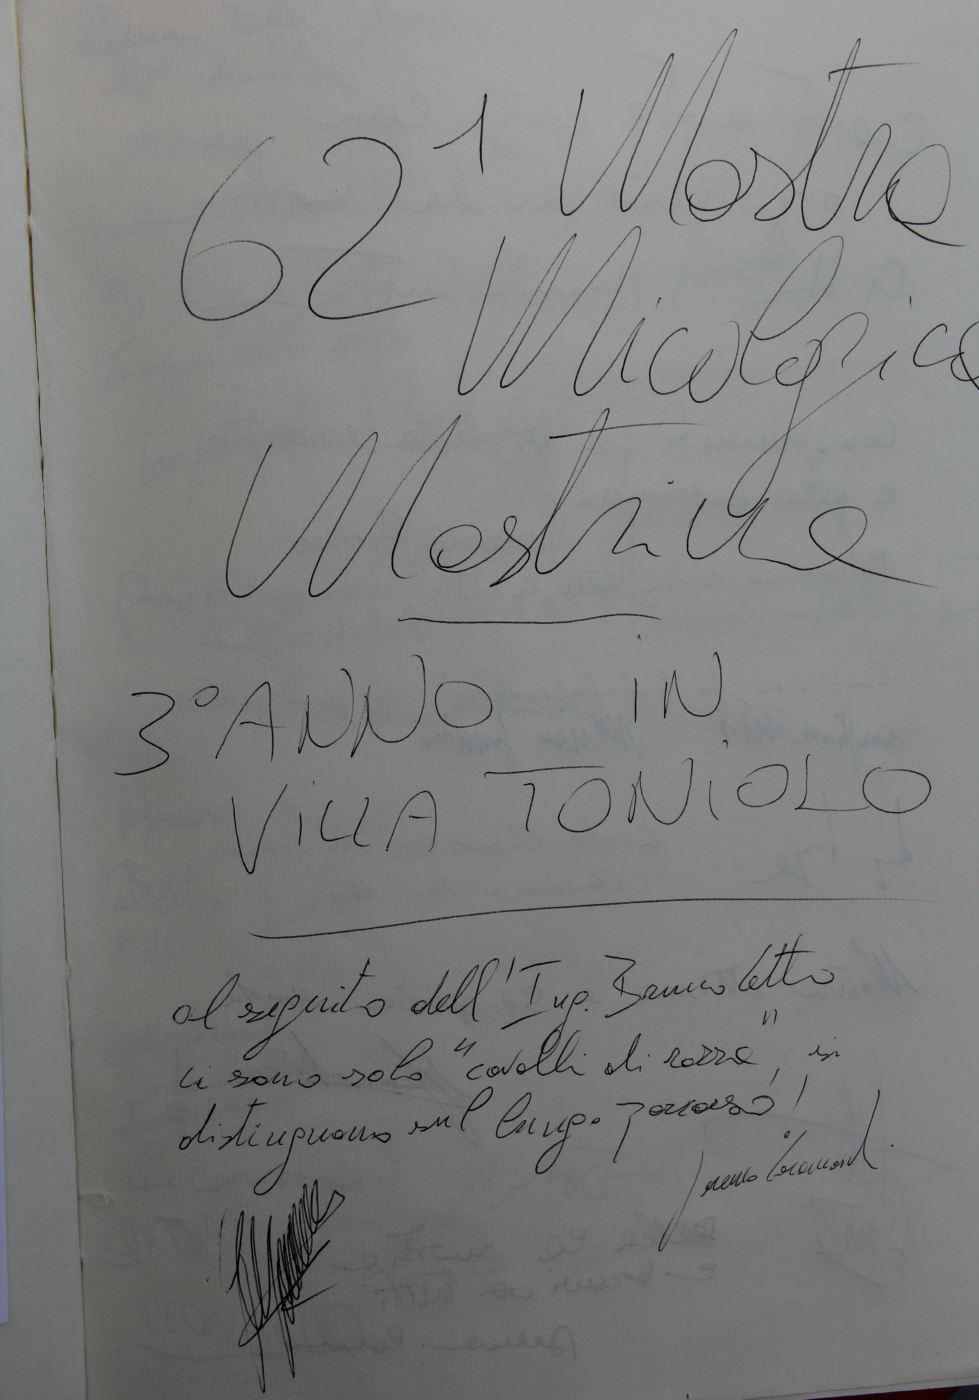 62ª Mostra
Micologica
Mestrina
3° ANNO IN
VILLA TONIOLO
al seguito dell'Ing. Brunoletto
ci sono solo "cavalli di razza", si
distinguono sul lungo percorso!